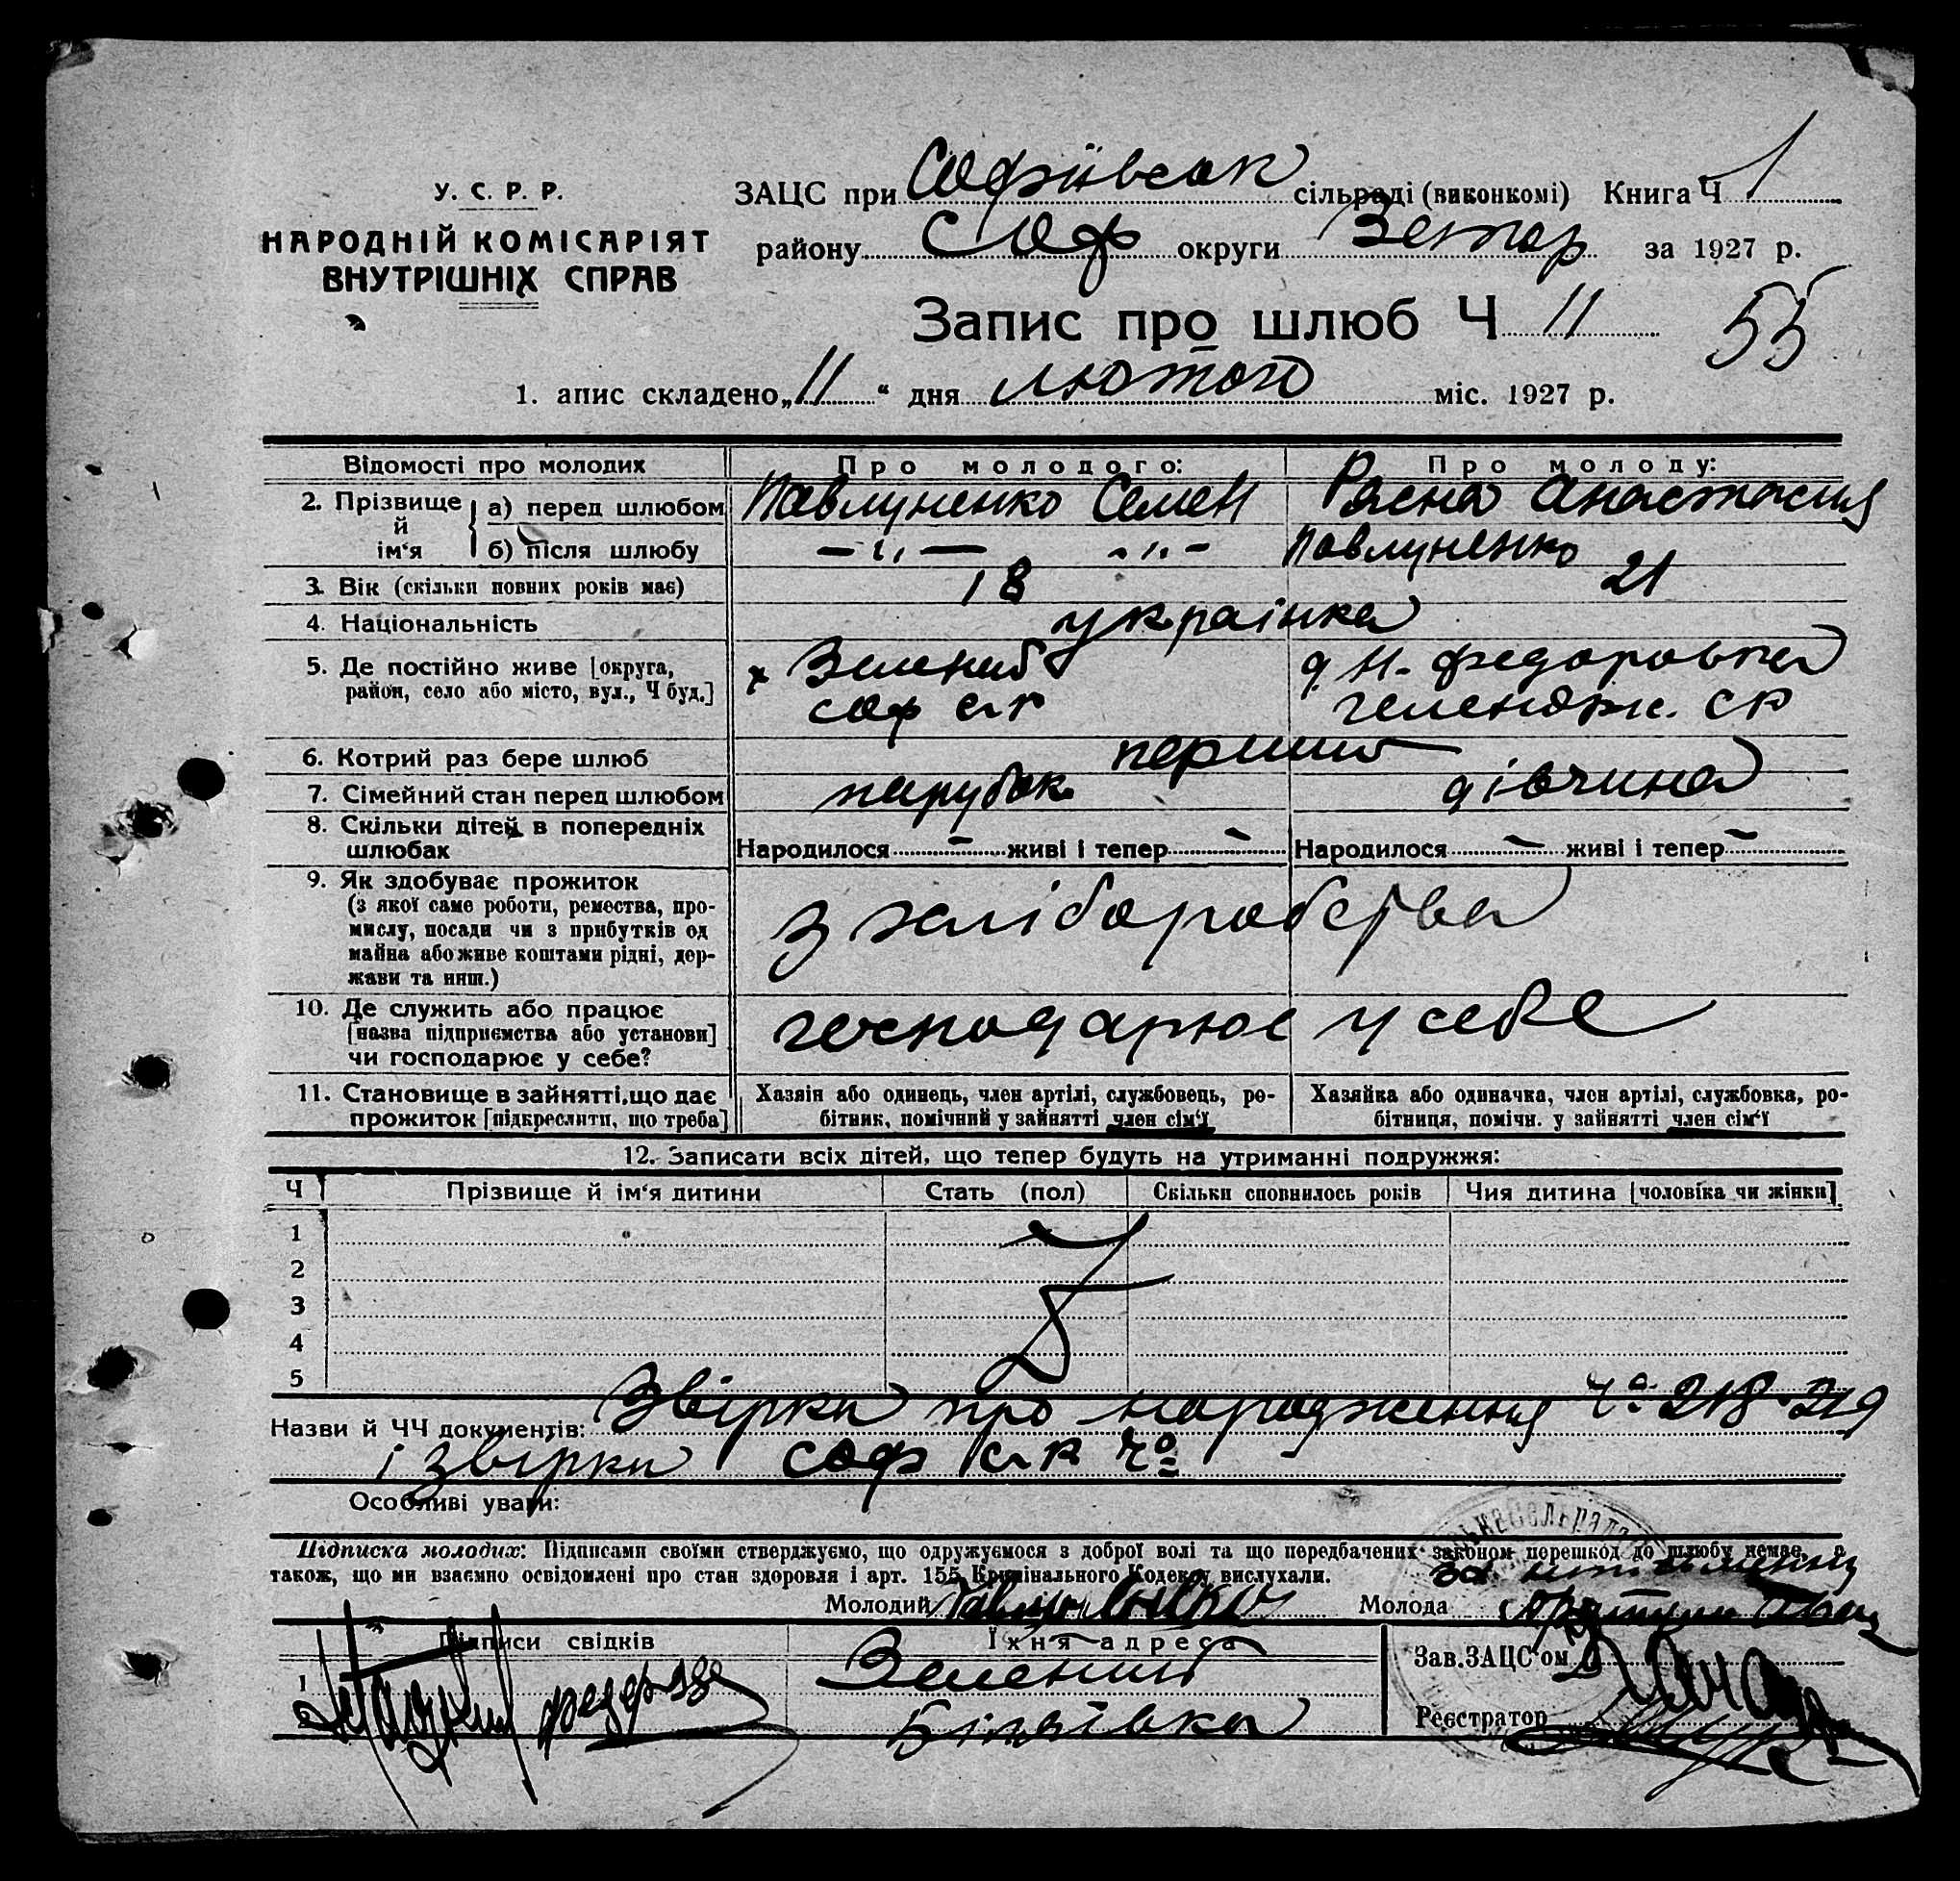 У. С. Р. Р.
НАРОДНІЙ КОМІСАРІЯТ
ВНУТРІШНІХ СПРАВ
ЗАЦС при Софиївськ сільраді (виконкомі) Книга Ч 1
району Соф округи Запор за 1927 р.
Запис про шлюб Ч 11
55
1. апис складено „11“ дня лютого міс. 1927 р.
Відомості про молодих Про молодого: Про молоду:
2. Прізвище й ім‘я а) перед шлюбом Павлуненко Семен Расна Анастасия
б) після шлюбу — „ — - „ - Павлуненко
3. Вік (скільки повних років має) 18 21
4. Національність українка
5. Де постійно живе [округа, х Зелений д. Н. Федоровка
район, село або місто, вул., Ч буд.] соф с-р гелендж. СР
6. Котрий раз бере шлюб перший
7. Сімейний стан перед шлюбом парубок дівчина
8. Скільки дітей в попередніх
шлюбах Народилося - живі і тепер - Народилося - живі і тепер -
9. Як здобуває прожиток
(з якої саме роботи, ремества, про-
мислу, посади чи з прибутків од
майна або живе коштами рідні, дер-
жави та инш.)
з хліборобства
10. Де служить або працює
[назва підприємства або установи]
чи господарює у себе?
господарює у себе
11. Становище в зайнятті, що дає Хазяїн або одинець, член артілі, службовець, ро- Хазяйка або одиначка, член артілі, службовка, ро-
прожиток [підкреслити, що треба] бітник, помічний у зайнятті член сім‘ї бітниця, помічн. у зайнятті член сім‘ї
12. Записати всіх дітей, що тепер будуть на утриманні подружжя:
Ч Прізвище й ім‘я дитини Стать (пол) Скільки сповнилось років Чия дитина [чоловіка чи жінки]
1
2
3
4
5
Назви й ЧЧ документів: Звірки про народження Чо 218-219
і звірки соф с-р Чо
Особливі уваги:
Підписка молодих: Підписами своїми стверджуємо, що одружуємося з доброї волі та що передбачених законом перешкод до шлюбу немає, а
також, що ми взаємно освідомлені про стан здоровля і арт. 155 Кримінального Кодексу вислухали.
Молодий Молода
Підписи свідків Їхня адреса Зав. ЗАЦС‘ом
1 Зелений
2 Білаївка Реєстратор